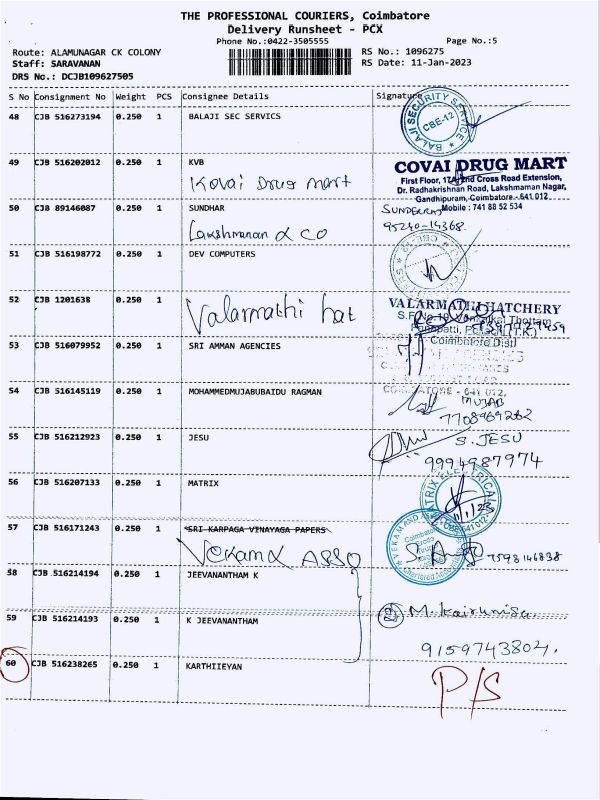 THE PROFESSIONAL COURIERS, Coimbatore
Delivery Runsheet - PCX
Phone No.:0422-3505555
Page No.:5
Route: ALAMUNAGAR CK COLONY
RS No.: 1096275
Staff: SARAVANAN
RS Date: 11-Jan-2023
DRS No.: DCJB109627505
S No Consignment No Weight PCS Consignee Details Signature
48 CJB 516273194 0.250 1 BALAJI SEC SERVICS
BALAJI SECURITY SERVICE
CBE-12
49 CJB 516202012 0.250 1 KVB
Kovai Drug mart
COVAI DRUG MART
First Floor, 17A, 2nd Cross Road Extension,
Dr. Radhakrishnan Road, Lakshmaman Nagar,
Gandhipuram, Coimbatore - 641 012.
Mobile : 741 88 52 534
50 CJB 89146087 0.250 1 SUNDHAR
Lakshmanan & CO
95240-14368
51 CJB 516198772 0.250 1 DEV COMPUTERS
52 CJB 1201638 0.250 1
Valarmathi hat
VALARMATHI HATCHERY
Coimbatore Dist
53 CJB 516079952 0.250 1 SRI AMMAN AGENCIES
54 CJB 516145119 0.250 1 MOHAMMEDMUJABUBAIDU RAGMAN
COIMBATORE - 641 012.
MUJAB
7708969262
55 CJB 516212923 0.250 1 JESU
S. JESU
9994987974
56 CJB 516207133 0.250 1 MATRIX
MATRIX ELECTRICAL
57 CJB 516171243 0.250 1 SRI KARPAGA VINAYAGA PAPERS
Vekam & ASSO
7598146838
58 CJB 516214194 0.250 1 JEEVANANTHAM K
59 CJB 516214193 0.250 1 K JEEVANANTHAM
M. Kairunisa.
9159743804.
60 CJB 516238265 0.250 1 KARTHIIEYAN
P/S